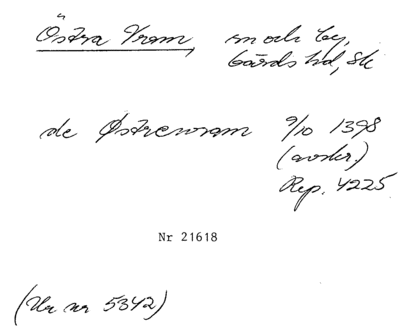 Östra Vram, sn och by,
Gärds hd, Sk
de Østrewram 9/10 1398
(avskr.)
Rep. 4225
Nr 21618
(Ur nr 5342)